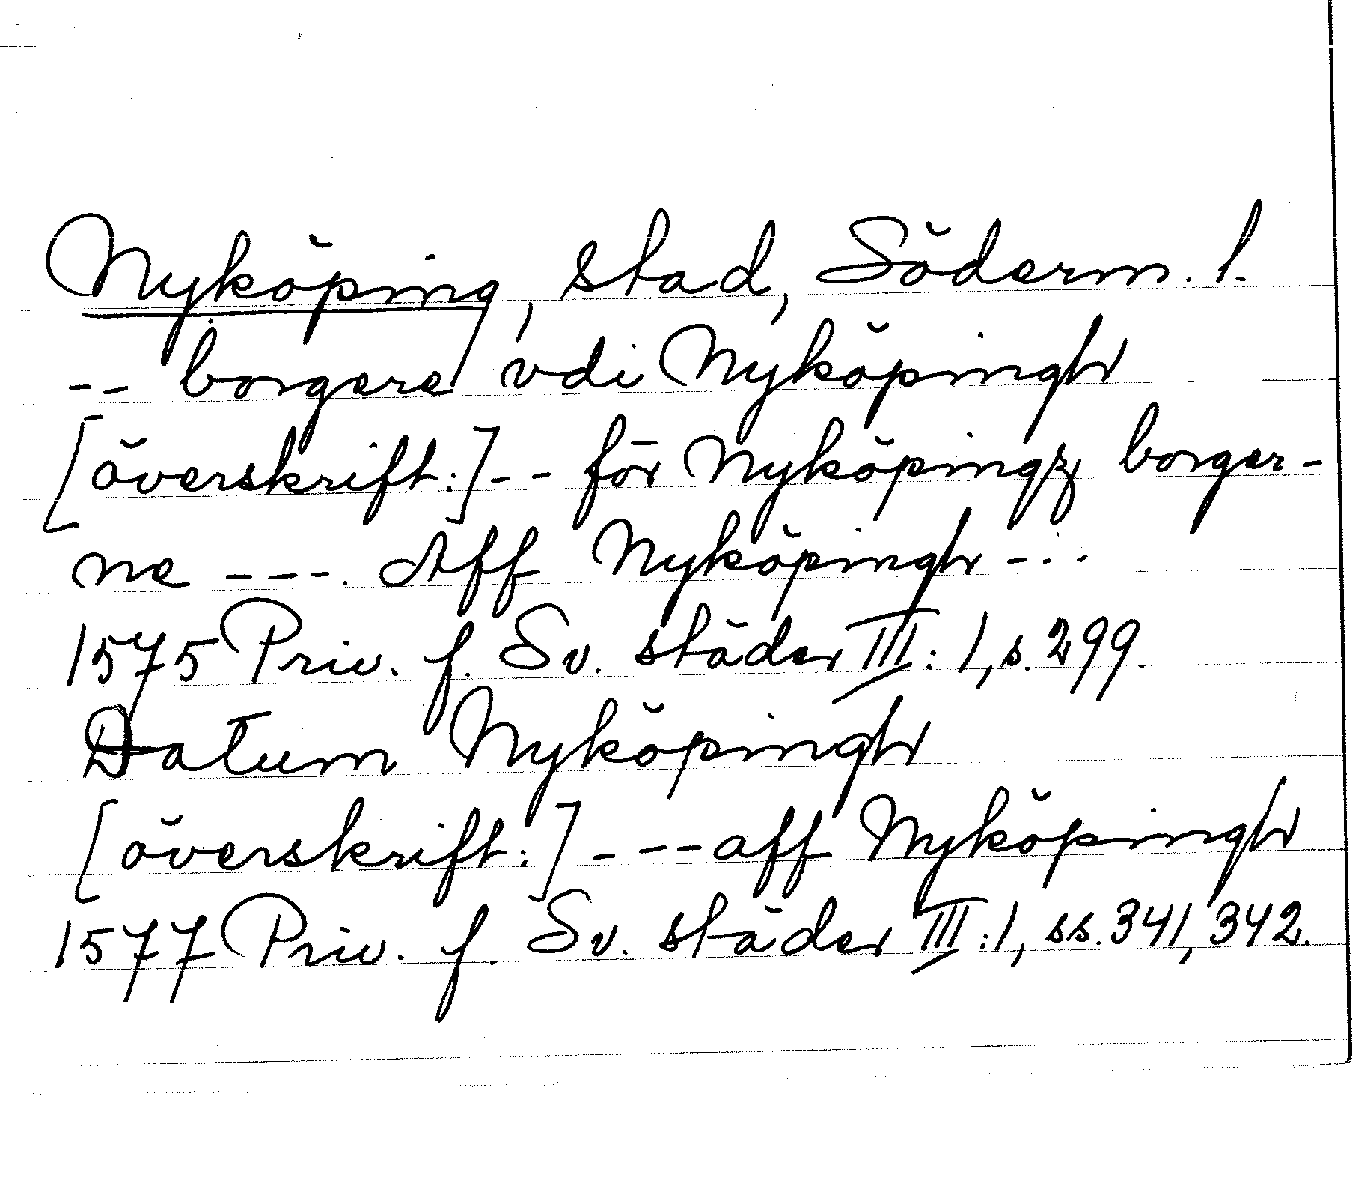 Nyköping, stad, Söderm. l.
-- borgere vdi Nyköpingh
[överskrift:] -- för Nyköpingz borger-
ne ---. Aff Nyköpingh ---
1575 Priv. f. Sv. städer III: 1, s. 299.
Datum Nyköpingh
[överskrift:] --- aff Nyköpingh
1577 Priv. f. Sv. städer III: 1, ss. 341, 342.